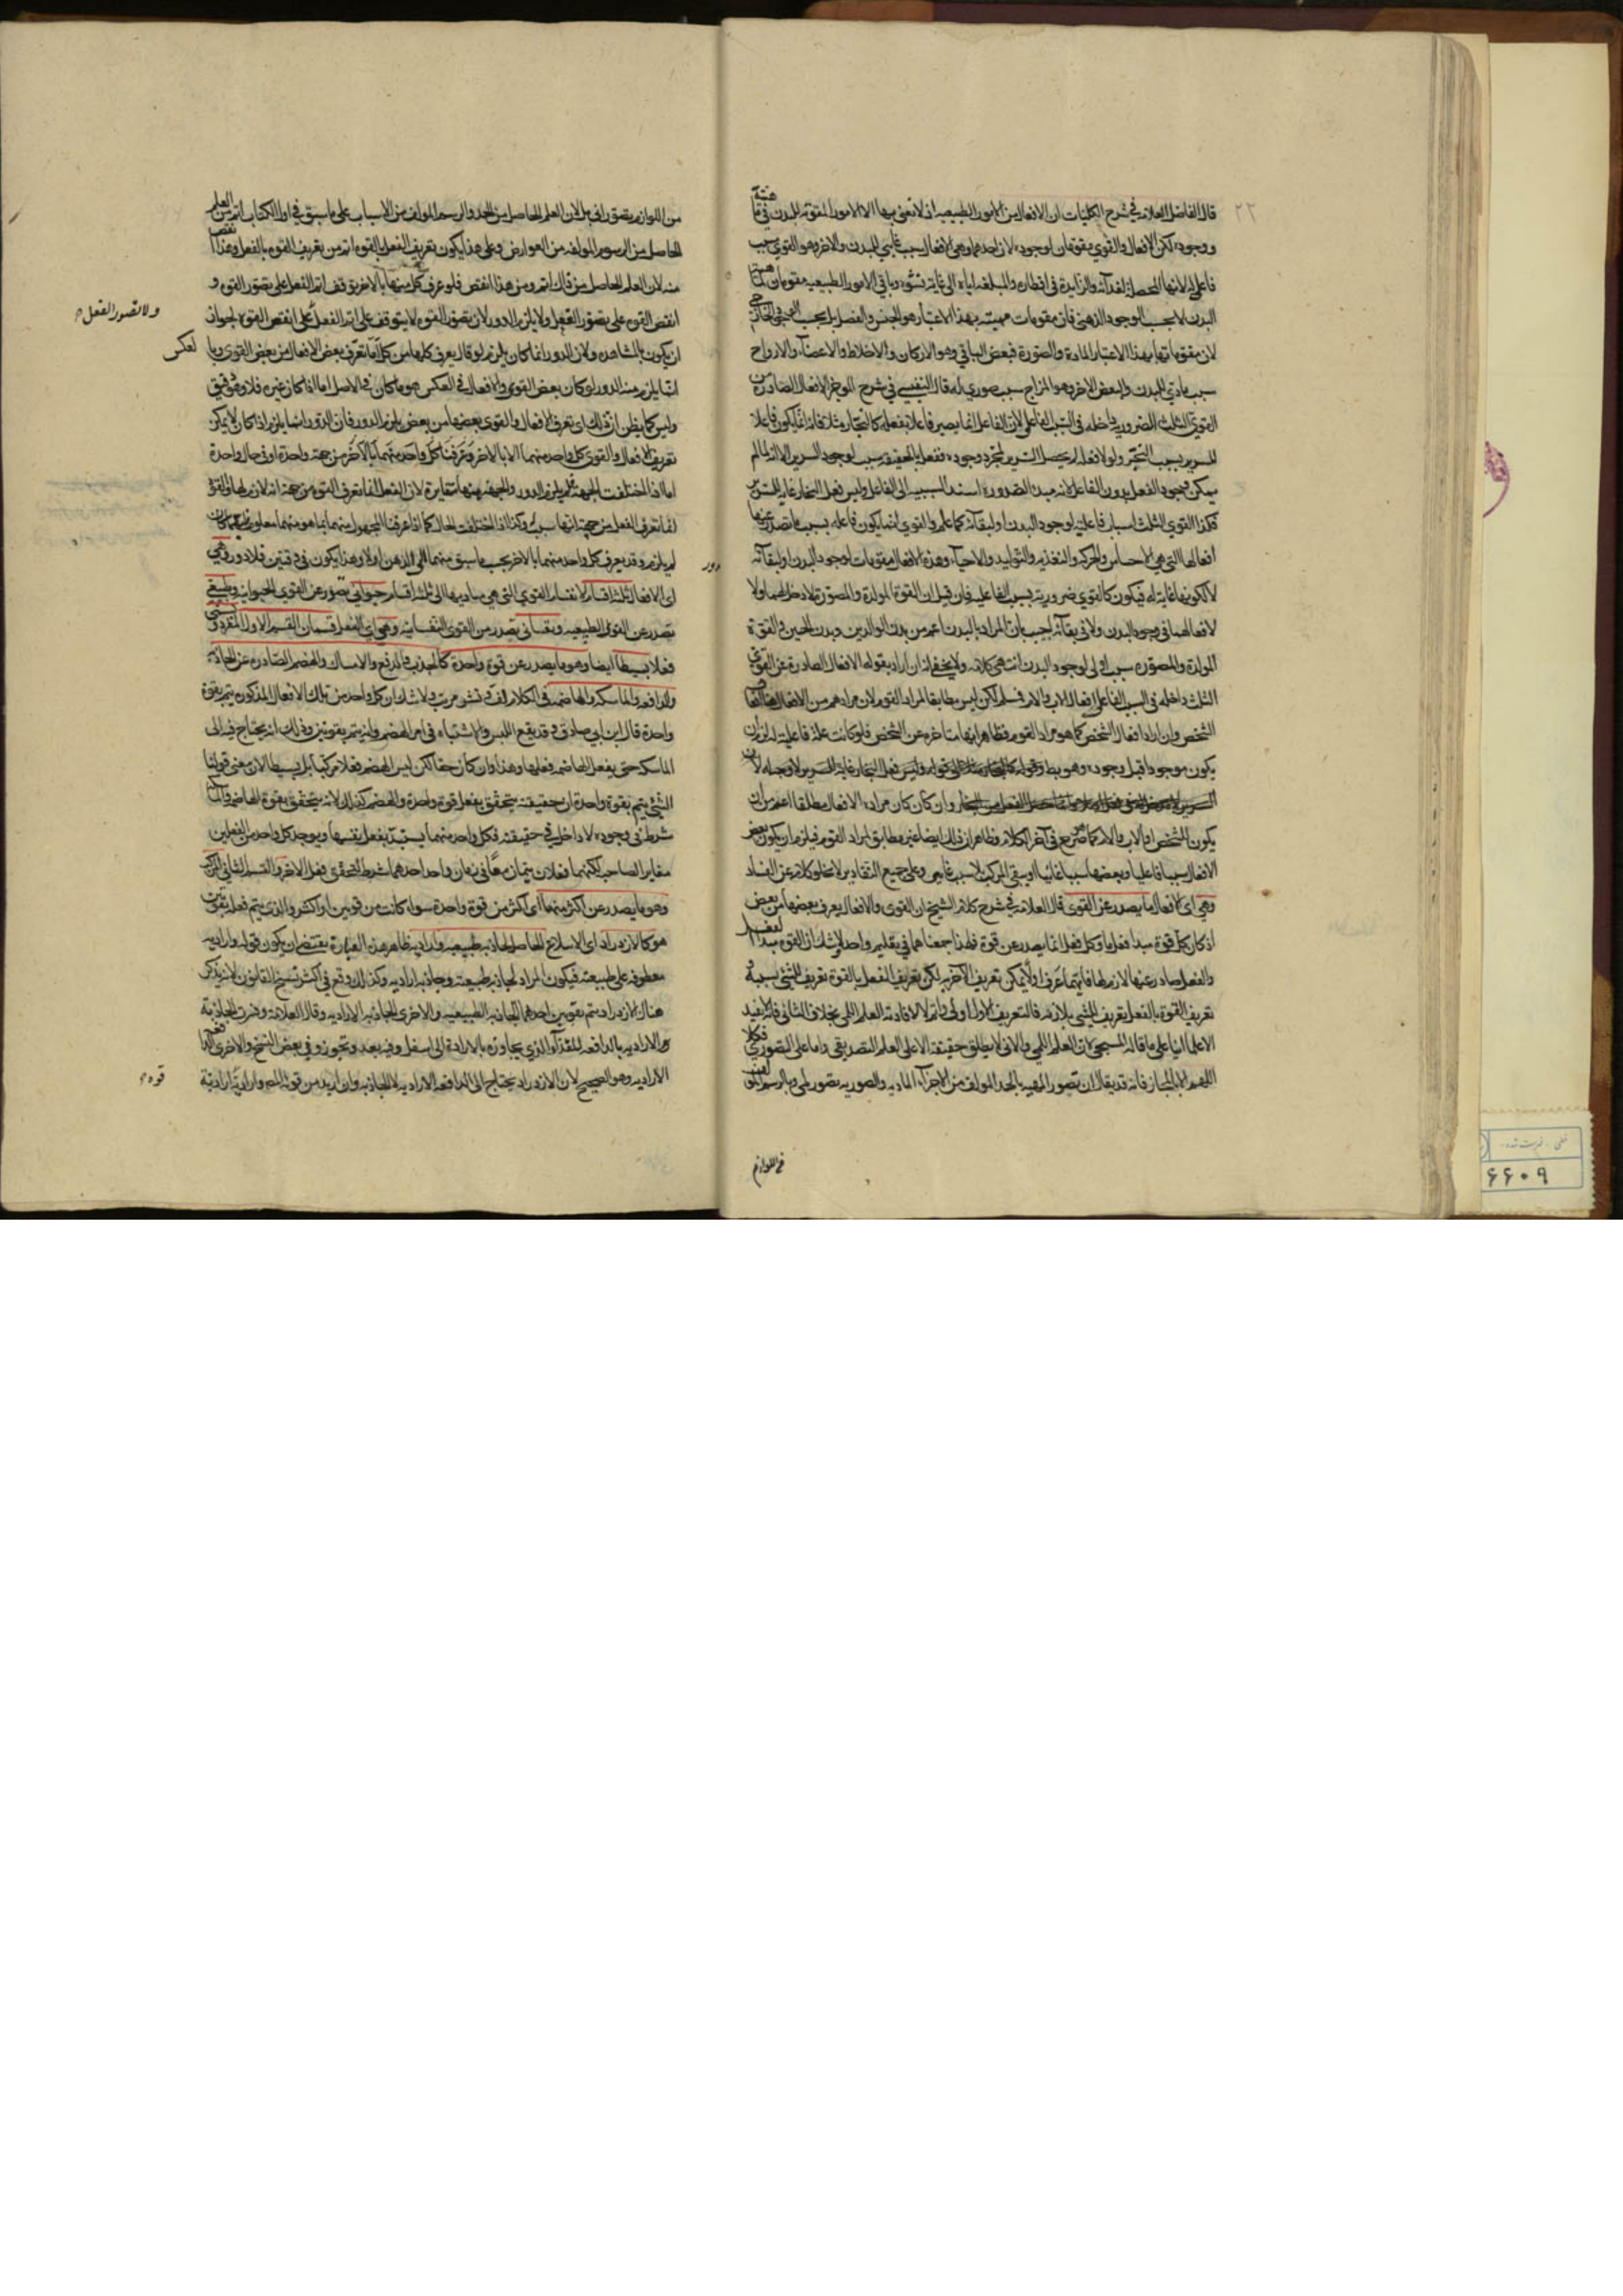 ٢٢
قال الفاضل العلامة في شرح الكليات ان الافعال من الامور الطبيعيه اذ لا نعنى بها الا الامور المقومة للبدن في
ووجوده لكن الافعال والقوي مقومان لوجوده لان احدهما وهي الافعال سبب غايي للبدن والاخر وهو القوي سبب
فاعلي لانها المحصلة لغذائه والزايدة في اقطاره والمبلغه اياه الى غاية نشوه وباقي الامور الطبيعيه مقومان
البدن لا بحسب الوجود الذهني فان مقومات مهيته بهذا الاعتبار هو الجنس والفصل بل بحسب
لان مقوماتها بهذا الاعتبار المادة والصورة فبعض الباقي وهو الاركان والاخلاط والاعضاء والارواح
سبب مادي للبدن والبعض الاخر وهو المزاج سبب صوري له قال النفيسي في شرح الموجز الافعال الصادرة من
القوي الثلث الضرورية داخله في السبب الفاعلي لان الفاعل انما يصير فاعلا بفعله كالنجار مثلا فانه انما يكون فاعلا
للسرير بسبب النجر ولولا فعله لم يحصل السرير بمجرد وجوده ففعله بالحقيقة سبب لوجود السرير الا انه لما لم
يمكن وجود الفعل بدون الفاعل لانه مبدء الصدوره اسند السببيه الى الفاعل وليس فعل النجار غاية للسرير
فكذا القوي الثلث اسباب فاعلية لوجود البدن او لبقائه كما علم والقوي انما يكون فاعله بسبب ما تصدر عنها
افعالها التي هي الاحساس والحركه والتغذيه والتوليد والاحياء وهذه الافعال مقومات لوجود البدن او لبقائه
لا لكونها غاية له فيكون كالقوي ضرورية بسبب الفاعليه فان قيل ان القوة المولدة والمصورة لا دخل لهما ولا
لافعالهما في وجود البدن ولا في بقائه اجيب بان المراد بالبدن اعم من بدن الوالدين وبدن الجنين والقوة
المولدة والمصورة سبب اولي لوجود البدن انتهى كلامه ولا يخفى انه ان اراد بقوله الافعال الصادرة عن القوي
الثلث داخله في السبب الفاعلي افعال الاب والام فمسلم لكن ليس مطابقا لمراد القوم لان مرادهم من الافعال
الشخص وان اراد افعال الشخص كما هو مراد القوم فظاهر انها متاخرة عن الشخص فلو كانت علة فاعلية له لزم ان
يكون موجودا قبل وجوده وهو بط وقوله وليس فعل النجار غاية للسرير لا وجه له لان
وان كان مراده الافعال مطلقا اعم من ان
يكون للشخص او الاب والام كما صرح في آخر الكلام فظاهر ان ذلك ايضا غير مطابق لمراد القوم فيلزم ان يكون بعض
الافعال سببا فاعليا وبعضها سببا غائيا او يبقى المركب لا سبب غايى وعلى جميع التقادير لا يخلو كلامه عن الفساد
وهي اى الافعال ما يصدر عن القوي قال العلامة في شرح كلام الشيخ ان القوى والافعال يعرف بعضها من بعض
اذ كان كل قوة مبدا فعل ما وكل فعل انما يصدر عن قوة فلهذا جمعناهما في تعليم واحد لا شك ان القوة مبدا للفعل
والفعل صادر عنها لازم لها فايتهما عرف اولا يمكن تعريف الآخر به لكن تعريف الفعل بالقوة تعريف للشئ بسببه و
تعريف القوة بالفعل تعريف للشئ بلازمه فالتعريف الاول اولى واتم لافادته العلم اللمي بخلاف الثاني فانه لا يفيد
الا علما انيا على ما قاله المسيحي لان العلم اللمي والاني لا يطلق حقيقة الا على العلم التصديقى واما على التصورى فكلا
اللهم الا بالمجاز فانه قد يقال ان تصور المهية بالحد المولف من الاجزاء المادية والصورية تصور لمي وبالرسم المولف
من اللوازم
من اللوازم تصور انى بل لان العلم الحاصل من الحد والرسم المولف من الاسباب على ما سبق في اول الكتاب اتم من العلم
الحاصل من الرسوم المولفه من العوارض وعلى هذا يكون تعريف الفعل بالقوة اتم من تعريف القوة بالفعل وهذا انقص
منه لان العلم الحاصل من ذاك اتم ومن هذا انقص فلو عرف كل منهما بالاخر توقف اتم الفعل على تصور القوة و
انقص القوة على تصور الفعل ولا يلزم الدور لان تصور القوة لا يتوقف على اتم الفعل على انقص القوة لجواز
ولا تصور الفعل
ان يكون بالمشاهده ولان الدور انما كان يلزم لو قال يعرف كلها من كل اما تعرف بعض الافعال من بعض القوى وبا
لعكس
انما يلزم منه الدور لو كان بعض القوى والافعال في العكس هو ما كان في الاصل اما اذا كان غيره فلا دور
وليس كما يظن ان ذلك اى تعرف الافعال والقوى بعضها من بعض يلزم الدور فان الدور انما يلزم اذا كان لا يمكن
تعريف الافعال والقوى كل واحد منهما الا بالاخر وعرفنا كل واحد منهما بالآخر من جهة واحدة او في حال واحدة
اما اذا اختلفت الجهة فلم يلزم الدور والجهة ههنا متغايرة لان الفعل انما تعرف القوة من جهة انه لازم لها والقوة
انما تعرف الفعل من جهة انها سببه وكذا اذا اختلفت الحال كما اذا عرفنا المجهول منهما بما هو منهما معلوم
لم يلزم وقد يعرف كل واحد منهما بالاخر بحسب ما سبق منهما الى الذهن اولا وهذا يكون في وقتين فلا دور وهي
دور
اى الافعال ثلثة اقسام لانقسام القوي التي هي مباديها الى ثلثة اقسام حيواني تصدر عن القوي الحيوانيه وطبيعي
تصدر عن القوى الطبيعيه ونفساني تصدر من القوى النفسانية وهي اي الفعل قسمان القسم الاول المفرد ويسمى
فعلا بسيطا ايضا وهو ما يصدر عن قوة واحدة كالجذب والدفع والامساك والهضم الصادرة عن الجاذبة
والدافعه والماسكه والهاضمه في الكلام لف ونشر مرتب ولا شك ان كل واحد من تلك الافعال المذكوره يتم بقوة
واحدة قال ابن ابي صادق وقد يقع اللبس والاشتباه في امر الهضم وانه يتم بقوتين وذلك انه يحتاج فيه الى
الماسكه حتى يفعل الهاضمه فعلها وهذا وان كان حقا لكن ليس الهضم فعلا مركبا بل بسيطا لان معنى قولنا
الشئ يتم بقوة واحدة ان حقيقته يتحقق بفعل قوة واحدة والهضم كذلك لانه يتحقق بقوة الهاضمه والماسكه
شرط في وجوده لا داخل في حقيقته فكل واحد منهما يستبد بفعل نفسها ويوجد كل واحد من الفعلين
مغاير الصاحبه لكنهما فعلان يتمان معا في زمان واحد احدهما شرط لتحقق فعل الاخر والقسم الثاني المركب
وهو ما يصدر عن اكثر منهما اى اكثر من قوة واحدة سواء كانت من قوتين او اكثر والذي يتم فعله بقوتين
هو كالازدراد اى الابتلاع الحاصل بجاذبه طبيعيه وارادية ظاهر هذه العبارة يقتضى ان يكون قوله وارادية
معطوفه على طبيعته فيكون المراد بجاذبه طبيعته وجاذبه ارادية وكذا الذى وقع في اكثر نسخ القانون لانه يذكر
هناك الازدراد يتم بقوتين احدهما الجاذبه الطبيعيه والاخرى الجاذبه الارادية وقال العلامة وفسرت الجاذبة
الارادية بالدافعه للغذاء الذي يجاوره بالارادة الى اسفل وفيه بعد وتجوز وفي بعض النسخ والاخرى الدافعه
الارادية وهو الصحيح لان الازدراد يحتاج الى الدافعه الارادية لا الجاذبه وان اريد من قوله وارادية ارادية
قوة
۶۶۰۹